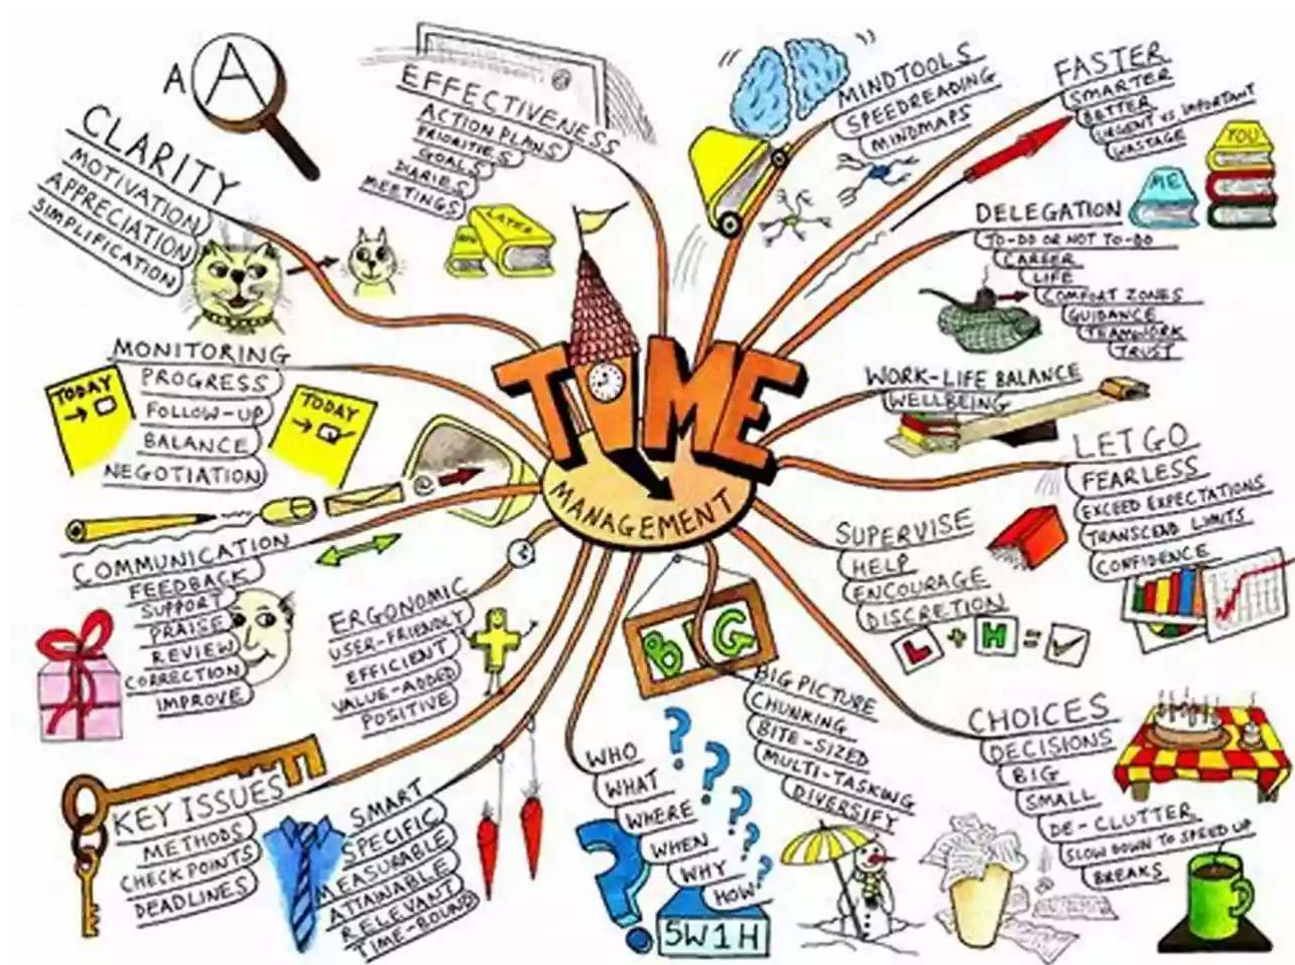 TIME
MANAGEMENT
A
A
CLARITY
MOTIVATION
APPRECIATION
SIMPLIFICATION
EFFECTIVENESS
ACTION PLANS
PRIORITIES
GOALS
DIARIES
MEETINGS
LATER
MINDTOOLS
SPEEDREADING
MINDMAPS
FASTER
SMARTER
BETTER
URGENT VS IMPORTANT
WASTAGE
YOU
ME
DELEGATION
TO-DO OR NOT TO-DO
CAREER
LIFE
COMFORT ZONES
GUIDANCE
TEAMWORK
TRUST
WORK-LIFE BALANCE
WELLBEING
LET GO
FEARLESS
EXCEED EXPECTATIONS
TRANSCEND LIMITS
CONFIDENCE
SUPERVISE
HELP
ENCOURAGE
DISCRETION
L + H = ✓
CHOICES
DECISIONS
BIG
SMALL
DE-CLUTTER
SLOW DOWN TO SPEED UP
BREAKS
BIG
BIG PICTURE
CHUNKING
BITE-SIZED
MULTI-TASKING
DIVERSIFY
WHO
WHAT
WHERE
WHEN
WHY
HOW
5W1H
SMART
SPECIFIC
MEASURABLE
ATTAINABLE
RELEVANT
TIME-BOUND
KEY ISSUES
METHODS
CHECKPOINTS
DEADLINES
ERGONOMIC
USER-FRIENDLY
EFFICIENT
VALUE-ADDED
POSITIVE
COMMUNICATION
FEEDBACK
SUPPORT
PRAISE
REVIEW
CORRECTION
IMPROVE
@
MONITORING
PROGRESS
FOLLOW-UP
BALANCE
NEGOTIATION
TODAY
TODAY